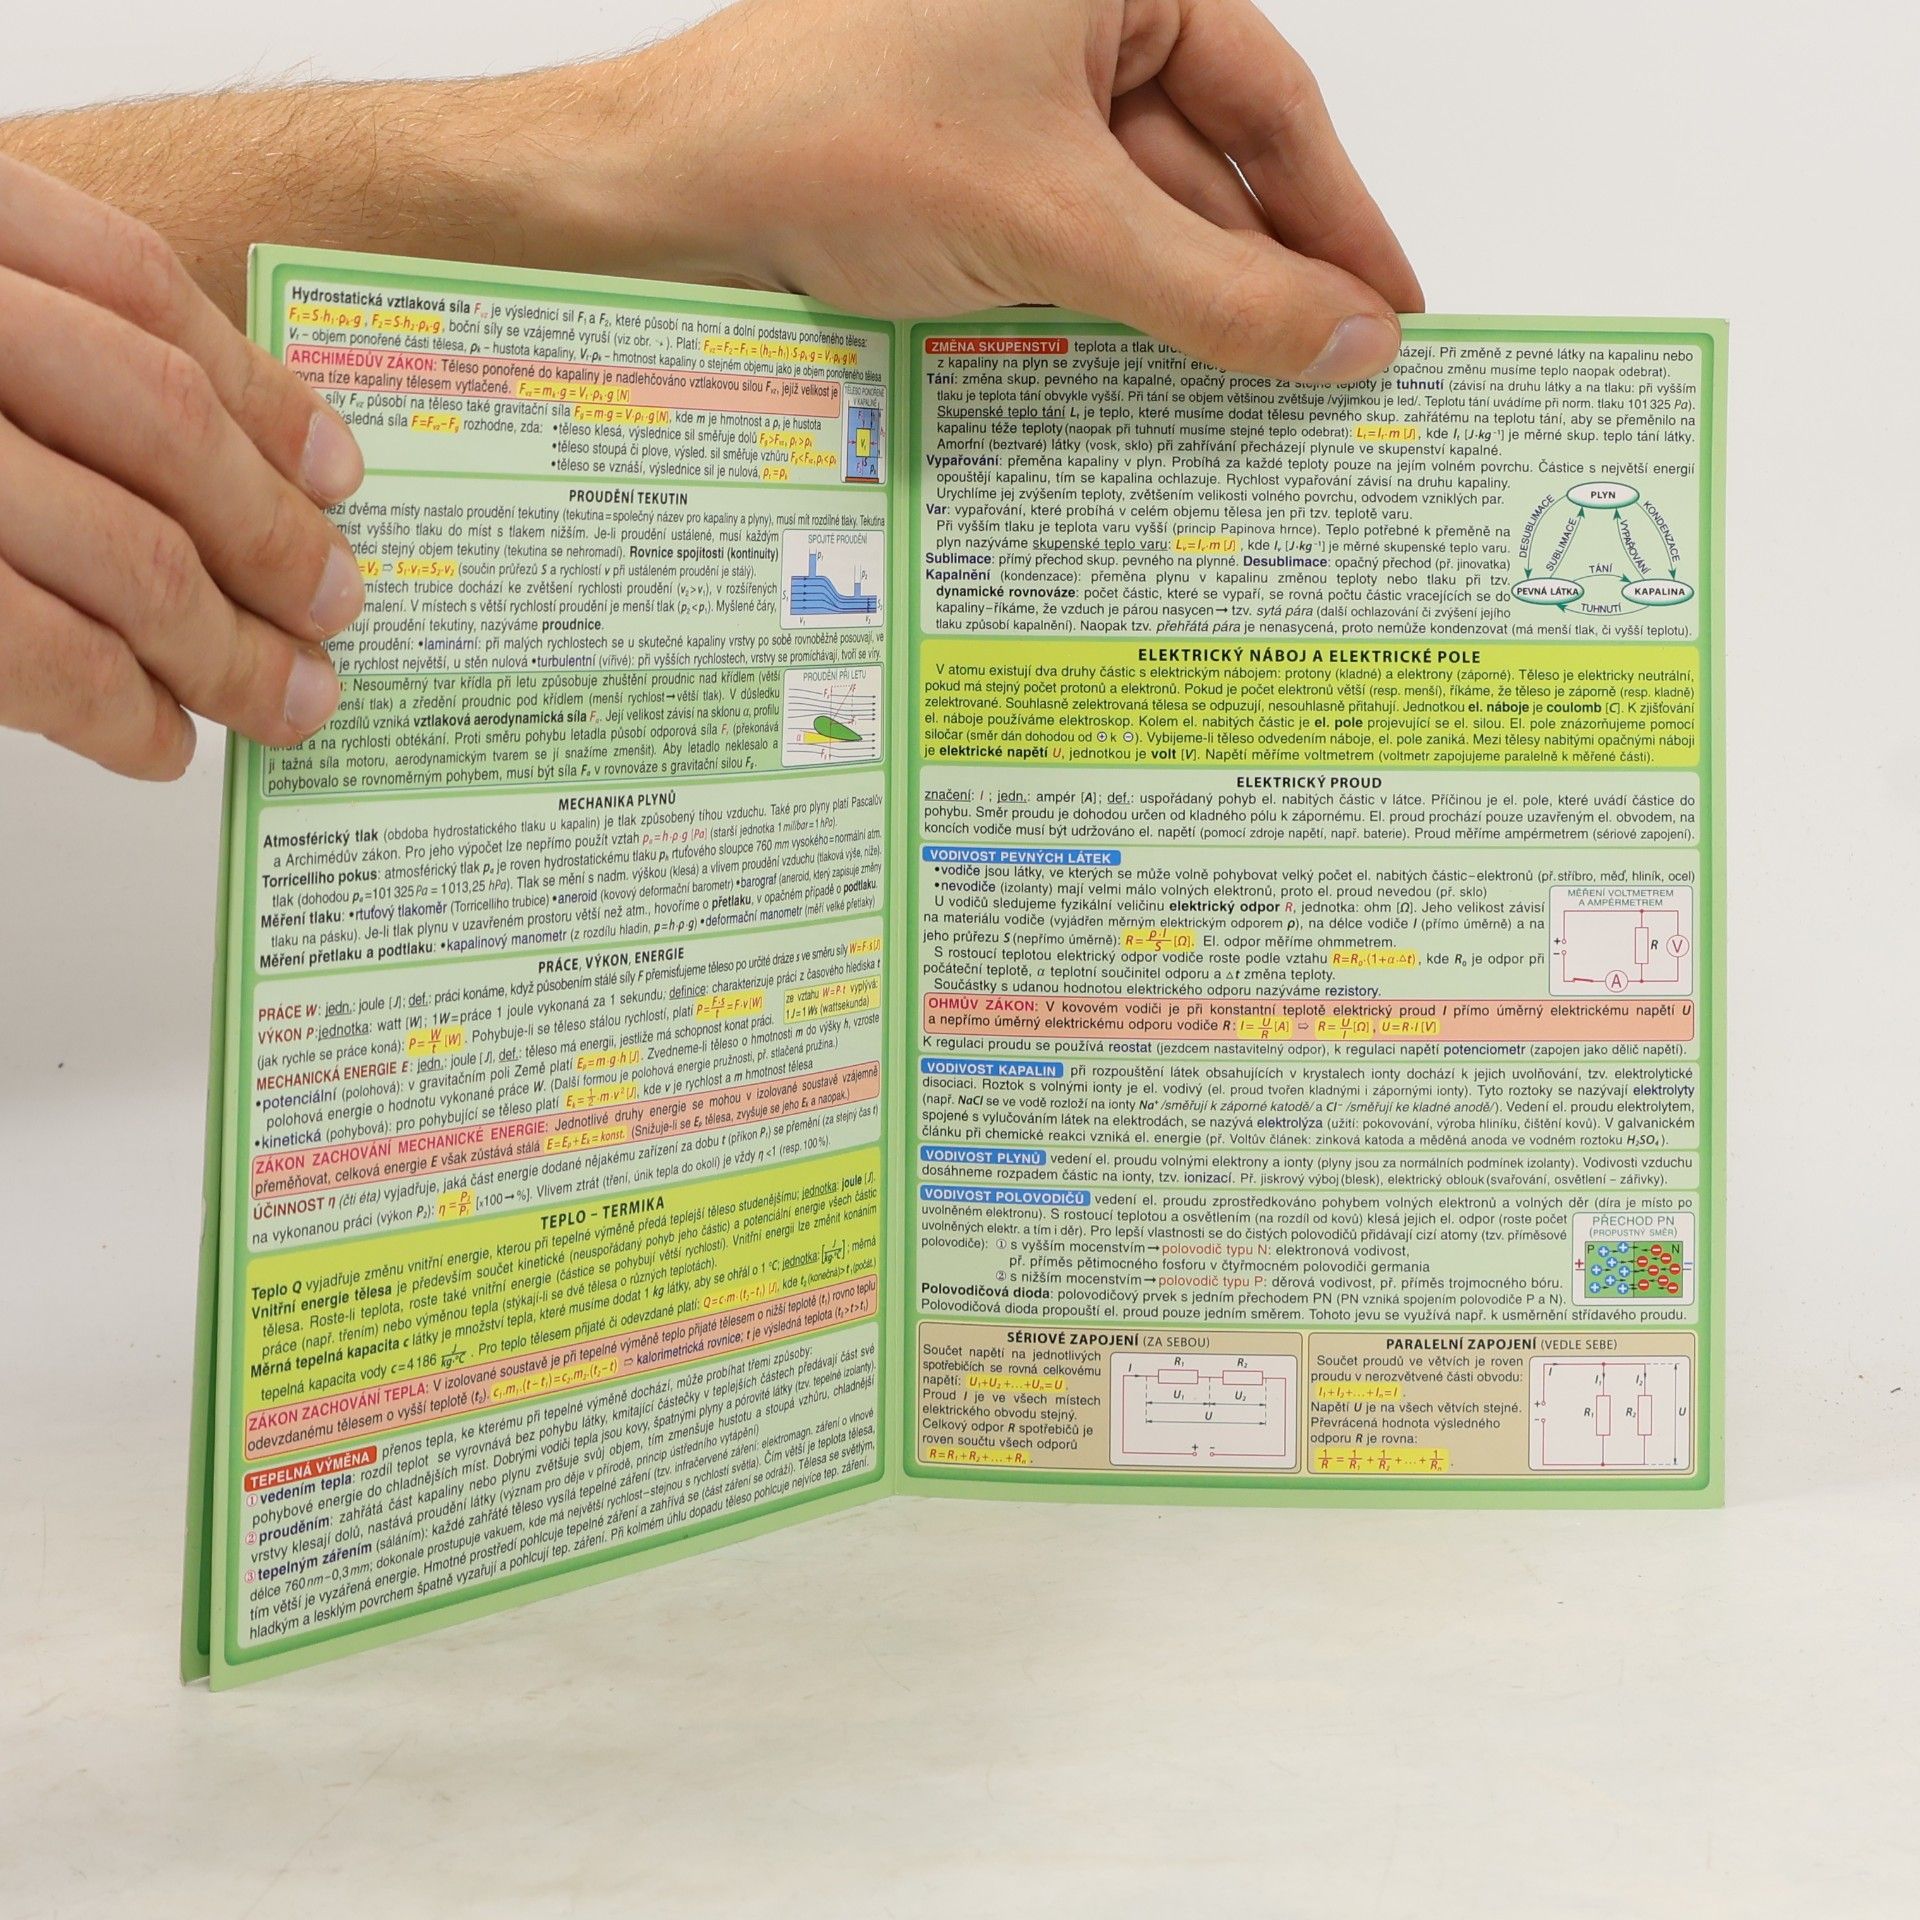 Hydrostatická vztlaková síla Fvz je výslednicí sil F₁ a F₂, které působí na horní a dolní podstavu ponořeného tělesa:
F₁=S·h₁·ρk·g , F₂=S·h₂·ρk·g, boční síly se vzájemně vyruší (viz obr. ↘ ). Platí: Fvz=F₂–F₁ = (h₂–h₁)·S·ρk·g = V₁·ρk·g [N]
V₁ – objem ponořené části tělesa, ρk – hustota kapaliny, V₁·ρk – hmotnost kapaliny o stejném objemu jako je objem ponořeného tělesa
ARCHIMÉDŮV ZÁKON: Těleso ponořené do kapaliny je nadlehčováno vztlakovou silou Fvz, jejíž velikost je
rovna tíze kapaliny tělesem vytlačené. Fvz=mk·g = V₁·ρk·g [N]
TĚLESO PONOŘENÉ V KAPALINĚ
síly Fvz působí na těleso také gravitační síla Fg=m·g=V·ρt·g [N], kde m je hmotnost a ρt je hustota
síla F=Fvz–Fg rozhodne, zda: •těleso klesá, výslednice sil směřuje dolů Fg>Fvz, ρt>ρk
•těleso stoupá či plove, výsled. sil směřuje vzhůru Fg<Fvz, ρt<ρk
•těleso se vznáší, výslednice sil je nulová, ρt=ρk
PROUDĚNÍ TEKUTIN
dvěma místy nastalo proudění tekutiny (tekutina=společný název pro kapaliny a plyny), musí mít rozdílné tlaky. Tekutina
míst vyššího tlaku do míst s tlakem nižším. Je-li proudění ustálené, musí každým
stejný objem tekutiny (tekutina se nehromadí). Rovnice spojitosti (kontinuity)
=V₂ ⇨ S₁·v₁=S₂·v₂ (součin průřezů S a rychlostí v při ustáleném proudění je stálý).
místech trubice dochází ke zvětšení rychlosti proudění (v₂>v₁), v rozšířených
V místech s větší rychlostí proudění je menší tlak (p₂<p₁). Myšlené čáry,
proudění tekutiny, nazýváme proudnice.
SPOJITÉ PROUDĚNÍ
proudění: •laminární: při malých rychlostech se u skutečné kapaliny vrstvy po sobě rovnoběžně posouvají, ve
je rychlost největší, u stěn nulová •turbulentní (vířivé): při vyšších rychlostech, vrstvy se promíchávají, tvoří se víry.
Nesouměrný tvar křídla při letu způsobuje zhuštění proudnic nad křídlem (větší
tlak) a zředění proudnic pod křídlem (menší rychlost→větší tlak). V důsledku
rozdílů vzniká vztlaková aerodynamická síla Fa. Její velikost závisí na sklonu α, profilu
a na rychlosti obtékání. Proti směru pohybu letadla působí odporová síla Fr (překonává
ji tažná síla motoru, aerodynamickým tvarem se jí snažíme zmenšit). Aby letadlo neklesalo a
pohybovalo se rovnoměrným pohybem, musí být síla Fa v rovnováze s gravitační silou Fg.
PROUDĚNÍ PŘI LETU
MECHANIKA PLYNŮ
Atmosférický tlak (obdoba hydrostatického tlaku u kapalin) je tlak způsobený tíhou vzduchu. Také pro plyny platí Pascalův
a Archimédův zákon. Pro jeho výpočet lze nepřímo použít vztah pa=h·ρ·g [Pa] (starší jednotka 1 milibar=1 hPa).
Torricelliho pokus: atmosférický tlak pa je roven hydrostatickému tlaku pk rtuťového sloupce 760 mm vysokého=normální atm.
tlak (dohodou pa=101 325 Pa = 1 013,25 hPa). Tlak se mění s nadm. výškou (klesá) a vlivem proudění vzduchu (tlaková výše, níže).
Měření tlaku: •rtuťový tlakoměr (Torricelliho trubice) •aneroid (kovový deformační barometr) •barograf (aneroid, který zapisuje změny
tlaku na pásku). Je-li tlak plynu v uzavřeném prostoru větší než atm., hovoříme o přetlaku, v opačném případě o podtlaku.
Měření přetlaku a podtlaku: •kapalinový manometr (z rozdílu hladin, p=h·ρ·g) •deformační manometr (měří velké přetlaky)
PRÁCE, VÝKON, ENERGIE
PRÁCE W: jedn.: joule [J]; def.: práci konáme, když působením stálé síly F přemisťujeme těleso po určité dráze s ve směru síly W=F·s [J]
VÝKON P:jednotka: watt [W]; 1W=práce 1 joule vykonaná za 1 sekundu; definice: charakterizuje práci z časového hlediska t
(jak rychle se práce koná): P=W/t [W]. Pohybuje-li se těleso stálou rychlostí, platí P=F·s/t=F·v[W]
ze vztahu W=P·t vyplývá: 1J=1Ws (wattsekunda)
MECHANICKÁ ENERGIE E: jedn.: joule [J], def.: těleso má energii, jestliže má schopnost konat práci.
•potenciální (polohová): v gravitačním poli Země platí Ep=m·g·h[J]. Zvedneme-li těleso o hmotnosti m do výšky h, vzroste
polohová energie o hodnotu vykonané práce W. (Další formou je polohová energie pružnosti, př. stlačená pružina.)
•kinetická (pohybová): pro pohybující se těleso platí Ek=½·m·v²[J], kde v je rychlost a m hmotnost tělesa
ZÁKON ZACHOVÁNÍ MECHANICKÉ ENERGIE: Jednotlivé druhy energie se mohou v izolované soustavě vzájemně
přeměňovat, celková energie E však zůstává stálá E=Ep+Ek=konst. (Snižuje-li se Ep tělesa, zvyšuje se jeho Ek a naopak.)
ÚČINNOST η (čti éta) vyjadřuje, jaká část energie dodané nějakému zařízení za dobu t (příkon P₁) se přemění (za stejný čas t)
na vykonanou práci (výkon P₂): η=P₂/P₁ [x100→%]. Vlivem ztrát (tření, únik tepla do okolí) je vždy η<1 (resp. 100%).
TEPLO – TERMIKA
Teplo Q vyjadřuje změnu vnitřní energie, kterou při tepelné výměně předá teplejší těleso studenějšímu; jednotka: joule [J].
Vnitřní energie tělesa je především součet kinetické (neuspořádaný pohyb jeho částic) a potenciální energie všech částic
tělesa. Roste-li teplota, roste také vnitřní energie (částice se pohybují větší rychlostí). Vnitřní energii lze změnit konáním
práce (např. třením) nebo výměnou tepla (stýkají-li se dvě tělesa o různých teplotách).
Měrná tepelná kapacita c látky je množství tepla, které musíme dodat 1 kg látky, aby se ohřál o 1 °C; jednotka: [J/kg·°C]; měrná
tepelná kapacita vody c=4186 J/kg·°C. Pro teplo tělesem přijaté či odevzdané platí: Q=c·m·(t₂–t₁) [J], kde t₂(konečná)>t₁(počát.)
ZÁKON ZACHOVÁNÍ TEPLA: V izolované soustavě je při tepelné výměně teplo přijaté tělesem o nižší teplotě (t₁) rovno teplu
odevzdanému tělesem o vyšší teplotě (t₂). c₁.m₁.(t–t₁)=c₂.m₂.(t₂–t) ⇨ kalorimetrická rovnice; t je výsledná teplota (t₂>t>t₁)
TEPELNÁ VÝMĚNA přenos tepla, ke kterému při tepelné výměně dochází, může probíhat třemi způsoby:
①vedením tepla: rozdíl teplot se vyrovnává bez pohybu látky, kmitající částečky v teplejších částech předávají část své
pohybové energie do chladnějších míst. Dobrými vodiči tepla jsou kovy, špatnými plyny a pórovité látky (tzv. tepelné izolanty).
②prouděním: zahřátá část kapaliny nebo plynu zvětšuje svůj objem, tím zmenšuje hustotu a stoupá vzhůru, chladnější
vrstvy klesají dolů, nastává proudění látky (význam pro děje v přírodě, princip ústředního vytápění)
③tepelným zářením (sáláním): každé zahřáté těleso vysílá tepelné záření (tzv. infračervené záření: elektromagn. záření o vlnové
délce 760 nm–0,3 mm; dokonale prostupuje vakuem, kde má největší rychlost–stejnou s rychlostí světla). Čím větší je teplota tělesa,
tím větší je vyzářená energie. Hmotné prostředí pohlcuje tepelné záření a zahřívá se (část záření se odráží). Tělesa se světlým,
hladkým a lesklým povrchem špatně vyzařují a pohlcují tep. záření. Při kolmém úhlu dopadu těleso pohlcuje nejvíce tep. záření.
ZMĚNA SKUPENSTVÍ teplota a tlak házejí. Při změně z pevné látky na kapalinu nebo
z kapaliny na plyn se zvyšuje její vnitřní opačnou změnu musíme teplo naopak odebrat).
Tání: změna skup. pevného na kapalné, opačný proces za stejné teploty je tuhnutí (závisí na druhu látky a na tlaku: při vyšším
tlaku je teplota tání obvykle vyšší. Při tání se objem většinou zvětšuje /výjimkou je led/. Teplotu tání uvádíme při norm. tlaku 101 325 Pa).
Skupenské teplo tání Lt je teplo, které musíme dodat tělesu pevného skup. zahřátému na teplotu tání, aby se přeměnilo na
kapalinu téže teploty (naopak při tuhnutí musíme stejné teplo odebrat): Lt=lt·m [J], kde lt [J·kg⁻¹] je měrné skup. teplo tání látky.
Amorfní (beztvaré) látky (vosk, sklo) při zahřívání přecházejí plynule ve skupenství kapalné.
Vypařování: přeměna kapaliny v plyn. Probíhá za každé teploty pouze na jejím volném povrchu. Částice s největší energií
opouštějí kapalinu, tím se kapalina ochlazuje. Rychlost vypařování závisí na druhu kapaliny.
Urychlíme jej zvýšením teploty, zvětšením velikosti volného povrchu, odvodem vzniklých par.
Var: vypařování, které probíhá v celém objemu tělesa jen při tzv. teplotě varu.
Při vyšším tlaku je teplota varu vyšší (princip Papinova hrnce). Teplo potřebné k přeměně na
plyn nazýváme skupenské teplo varu: Lv=lv·m [J] , kde lv [J·kg⁻¹] je měrné skupenské teplo varu.
Sublimace: přímý přechod skup. pevného na plynné. Desublimace: opačný přechod (př. jinovatka)
Kapalnění (kondenzace): přeměna plynu v kapalinu změnou teploty nebo tlaku při tzv.
dynamické rovnováze: počet částic, které se vypaří, se rovná počtu částic vracejících se do
kapaliny–říkáme, že vzduch je párou nasycen→ tzv. sytá pára (další ochlazování či zvýšení jejího
tlaku způsobí kapalnění). Naopak tzv. přehřátá pára je nenasycená, proto nemůže kondenzovat (má menší tlak, či vyšší teplotu).
PLYN
DESUBLIMACE
SUBLIMACE
VYPAŘOVÁNÍ
KONDENZACE
TÁNÍ
PEVNÁ LÁTKA
KAPALINA
TUHNUTÍ
ELEKTRICKÝ NÁBOJ A ELEKTRICKÉ POLE
V atomu existují dva druhy částic s elektrickým nábojem: protony (kladné) a elektrony (záporné). Těleso je elektricky neutrální,
pokud má stejný počet protonů a elektronů. Pokud je počet elektronů větší (resp. menší), říkáme, že těleso je záporně (resp. kladně)
zelektrované. Souhlasně zelektrovaná tělesa se odpuzují, nesouhlasně přitahují. Jednotkou el. náboje je coulomb [C]. K zjišťování
el. náboje používáme elektroskop. Kolem el. nabitých částic je el. pole projevující se el. silou. El. pole znázorňujeme pomocí
siločar (směr dán dohodou od ⊕ k ⊖). Vybijeme-li těleso odvedením náboje, el. pole zaniká. Mezi tělesy nabitými opačnými náboji
je elektrické napětí U, jednotkou je volt [V]. Napětí měříme voltmetrem (voltmetr zapojujeme paralelně k měřené části).
ELEKTRICKÝ PROUD
značení: I ; jedn.: ampér [A]; def.: uspořádaný pohyb el. nabitých částic v látce. Příčinou je el. pole, které uvádí částice do
pohybu. Směr proudu je dohodou určen od kladného pólu k zápornému. El. proud prochází pouze uzavřeným el. obvodem, na
koncích vodiče musí být udržováno el. napětí (pomocí zdroje napětí, např. baterie). Proud měříme ampérmetrem (sériové zapojení).
VODIVOST PEVNÝCH LÁTEK
•vodiče jsou látky, ve kterých se může volně pohybovat velký počet el. nabitých částic–elektronů (př.stříbro, měď, hliník, ocel)
•nevodiče (izolanty) mají velmi málo volných elektronů, proto el. proud nevedou (př. sklo)
U vodičů sledujeme fyzikální veličinu elektrický odpor R, jednotka: ohm [Ω]. Jeho velikost závisí
na materiálu vodiče (vyjádřen měrným elektrickým odporem ρ), na délce vodiče l (přímo úměrně) a na
jeho průřezu S (nepřímo úměrně): R=ρ·l/S [Ω]. El. odpor měříme ohmmetrem.
S rostoucí teplotou elektrický odpor vodiče roste podle vztahu R=R₀·(1+α·△t), kde R₀ je odpor při
počáteční teplotě, α teplotní součinitel odporu a △t změna teploty.
Součástky s udanou hodnotou elektrického odporu nazýváme rezistory.
MĚŘENÍ VOLTMETREM
A AMPÉRMETREM
R V
A
OHMŮV ZÁKON: V kovovém vodiči je při konstantní teplotě elektrický proud I přímo úměrný elektrickému napětí U
a nepřímo úměrný elektrickému odporu vodiče R: I=U/R [A] ⇨ R=U/I [Ω], U=R·I [V]
K regulaci proudu se používá reostat (jezdcem nastavitelný odpor), k regulaci napětí potenciometr (zapojen jako dělič napětí).
VODIVOST KAPALIN při rozpouštění látek obsahujících v krystalech ionty dochází k jejich uvolňování, tzv. elektrolytické
disociaci. Roztok s volnými ionty je el. vodivý (el. proud tvořen kladnými i zápornými ionty). Tyto roztoky se nazývají elektrolyty
(např. NaCl se ve vodě rozloží na ionty Na⁺ /směřují k záporné katodě/ a Cl⁻ /směřují ke kladné anodě/). Vedení el. proudu elektrolytem,
spojené s vylučováním látek na elektrodách, se nazývá elektrolýza (užití: pokovování, výroba hliníku, čištění kovů). V galvanickém
článku při chemické reakci vzniká el. energie (př. Voltův článek: zinková katoda a měděná anoda ve vodném roztoku H₂SO₄).
VODIVOST PLYNŮ vedení el. proudu volnými elektrony a ionty (plyny jsou za normálních podmínek izolanty). Vodivosti vzduchu
dosáhneme rozpadem částic na ionty, tzv. ionizací. Př. jiskrový výboj (blesk), elektrický oblouk (svařování, osvětlení – zářivky).
VODIVOST POLOVODIČŮ vedení el. proudu zprostředkováno pohybem volných elektronů a volných děr (díra je místo po
uvolněném elektronu). S rostoucí teplotou a osvětlením (na rozdíl od kovů) klesá jejich el. odpor (roste počet
uvolněných elektr. a tím i děr). Pro lepší vlastnosti se do čistých polovodičů přidávají cizí atomy (tzv. příměsové
polovodiče): ① s vyšším mocenstvím→polovodič typu N: elektronová vodivost,
př. příměs pětimocného fosforu v čtyřmocném polovodiči germania
② s nižším mocenstvím→polovodič typu P: děrová vodivost, př. příměs trojmocného bóru.
Polovodičová dioda: polovodičový prvek s jedním přechodem PN (PN vzniká spojením polovodiče P a N).
Polovodičová dioda propouští el. proud pouze jedním směrem. Tohoto jevu se využívá např. k usměrnění střídavého proudu.
PŘECHOD PN
(PROPUSTNÝ SMĚR)
P N
SÉRIOVÉ ZAPOJENÍ (ZA SEBOU)
Součet napětí na jednotlivých
spotřebičích se rovná celkovému
napětí: U₁+U₂+...+Uₙ=U.
Proud I je ve všech místech
elektrického obvodu stejný.
Celkový odpor R spotřebičů je
roven součtu všech odporů
R=R₁+R₂+...+Rₙ.
I R₁ R₂
U₁ U₂
U
PARALELNÍ ZAPOJENÍ (VEDLE SEBE)
Součet proudů ve větvích je roven
proudu v nerozvětvené části obvodu:
I₁+I₂+...+Iₙ=I.
Napětí U je na všech větvích stejné.
Převrácená hodnota výsledného
odporu R je rovna:
1/R = 1/R₁ + 1/R₂ + ... + 1/Rₙ.
I I₁ I₂
R₁ R₂ U